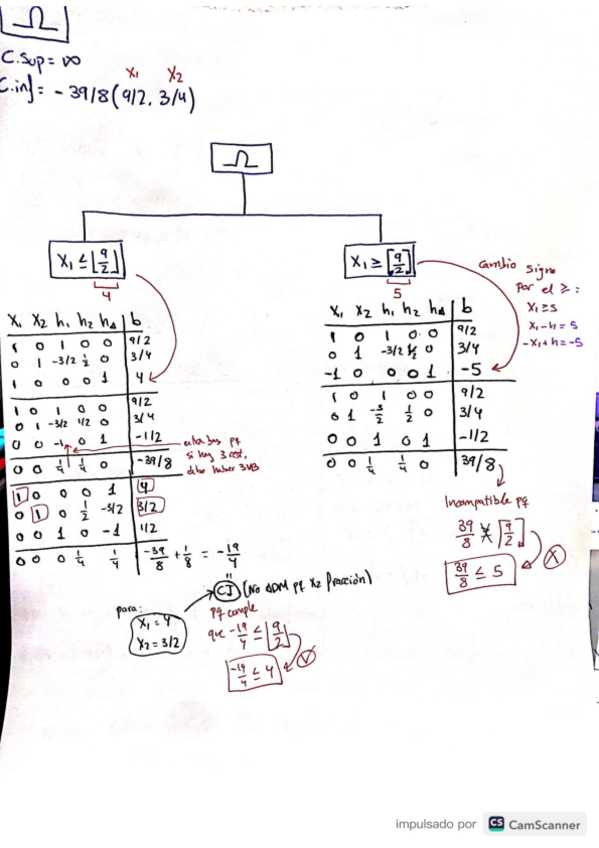 Ω
C.Sup = ∞
x₁ x₂
C.inf = - 39/8 (9/2, 3/4)
Ω
X₁ ≤ ⌊9/2⌋
4
X₁ ≥ ⌈9/2⌉
5
cambio signo
por el ≥ :
X₁ ≥ 5
X₁ - h = 5
-X₁ + h = -5
X₁ X₂ h₁ h₂ h₄ | b
1 0 1 0 0 | 9/2
0 1 -3/2 1/2 0 | 3/4
1 0 0 0 1 | 4
1 0 1 0 0 | 9/2
0 1 -3/2 1/2 0 | 3/4
0 0 -1 0 1 | -1/2
0 0 1/4 1/4 0 | -39/8
1 0 0 0 1 | 4
0 1 0 1/2 -3/2 | 3/2
0 0 1 0 -1 | 1/2
0 0 0 1/4 1/4 | -39/8 + 1/8 = -19/4
entra bas pq
si hay 3 rest.
debe haber 3VB
X₁ X₂ h₁ h₂ h₄ | b
1 0 1 0 0 | 9/2
0 1 -3/2 1/2 0 | 3/4
-1 0 0 0 1 | -5
1 0 1 0 0 | 9/2
0 1 -3/2 1/2 0 | 3/4
0 0 1 0 1 | -1/2
0 0 1/4 1/4 0 | 39/8
Incompatible pq
39/8 ≰ ⌈9/2⌉
39/8 ≤ 5
X
para:
X₁ = 4
X₂ = 3/2
CI (No ADM pq X₂ fracción)
pq cumple
que -19/4 ≤ ⌊9/2⌋
-19/4 ≤ 4
V
impulsado por CS CamScanner